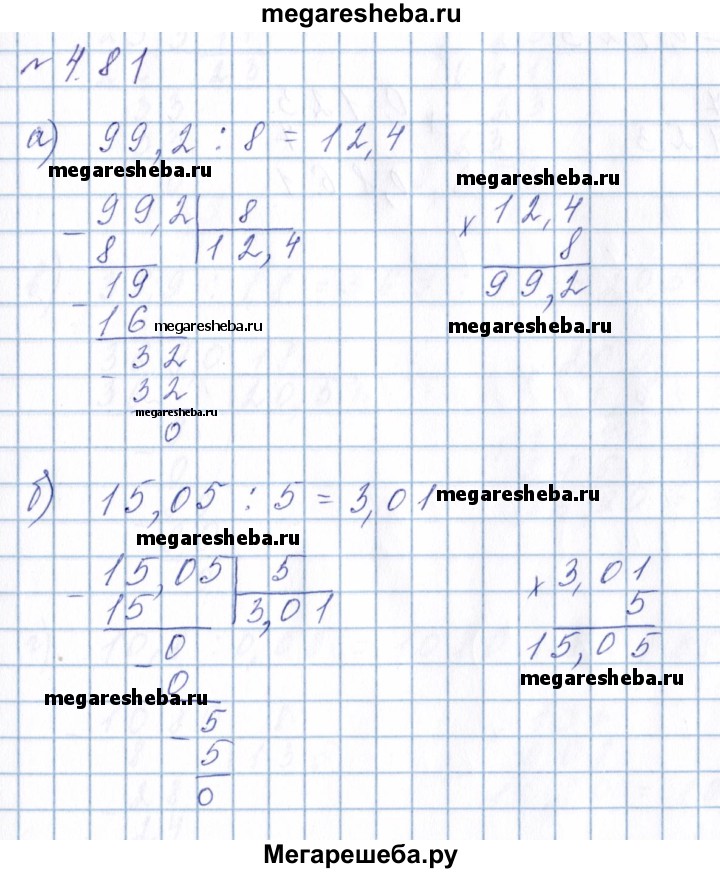 megaresheba.ru
№ 4.81
а) 99,2 : 8 = 12,4
megaresheba.ru
megaresheba.ru
- 99,2 | 8
8 12,4
- 19
16 megaresheba.ru
- 32
32
megaresheba.ru
0
x 12,4
8
99,2
megaresheba.ru
б) 15,05 : 5 = 3,01 megaresheba.ru
megaresheba.ru
- 15,05 | 5
15 3,01
- 0
0
megaresheba.ru
- 5
5
0
x 3,01
5
15,05
megaresheba.ru
Мегарешеба.ру